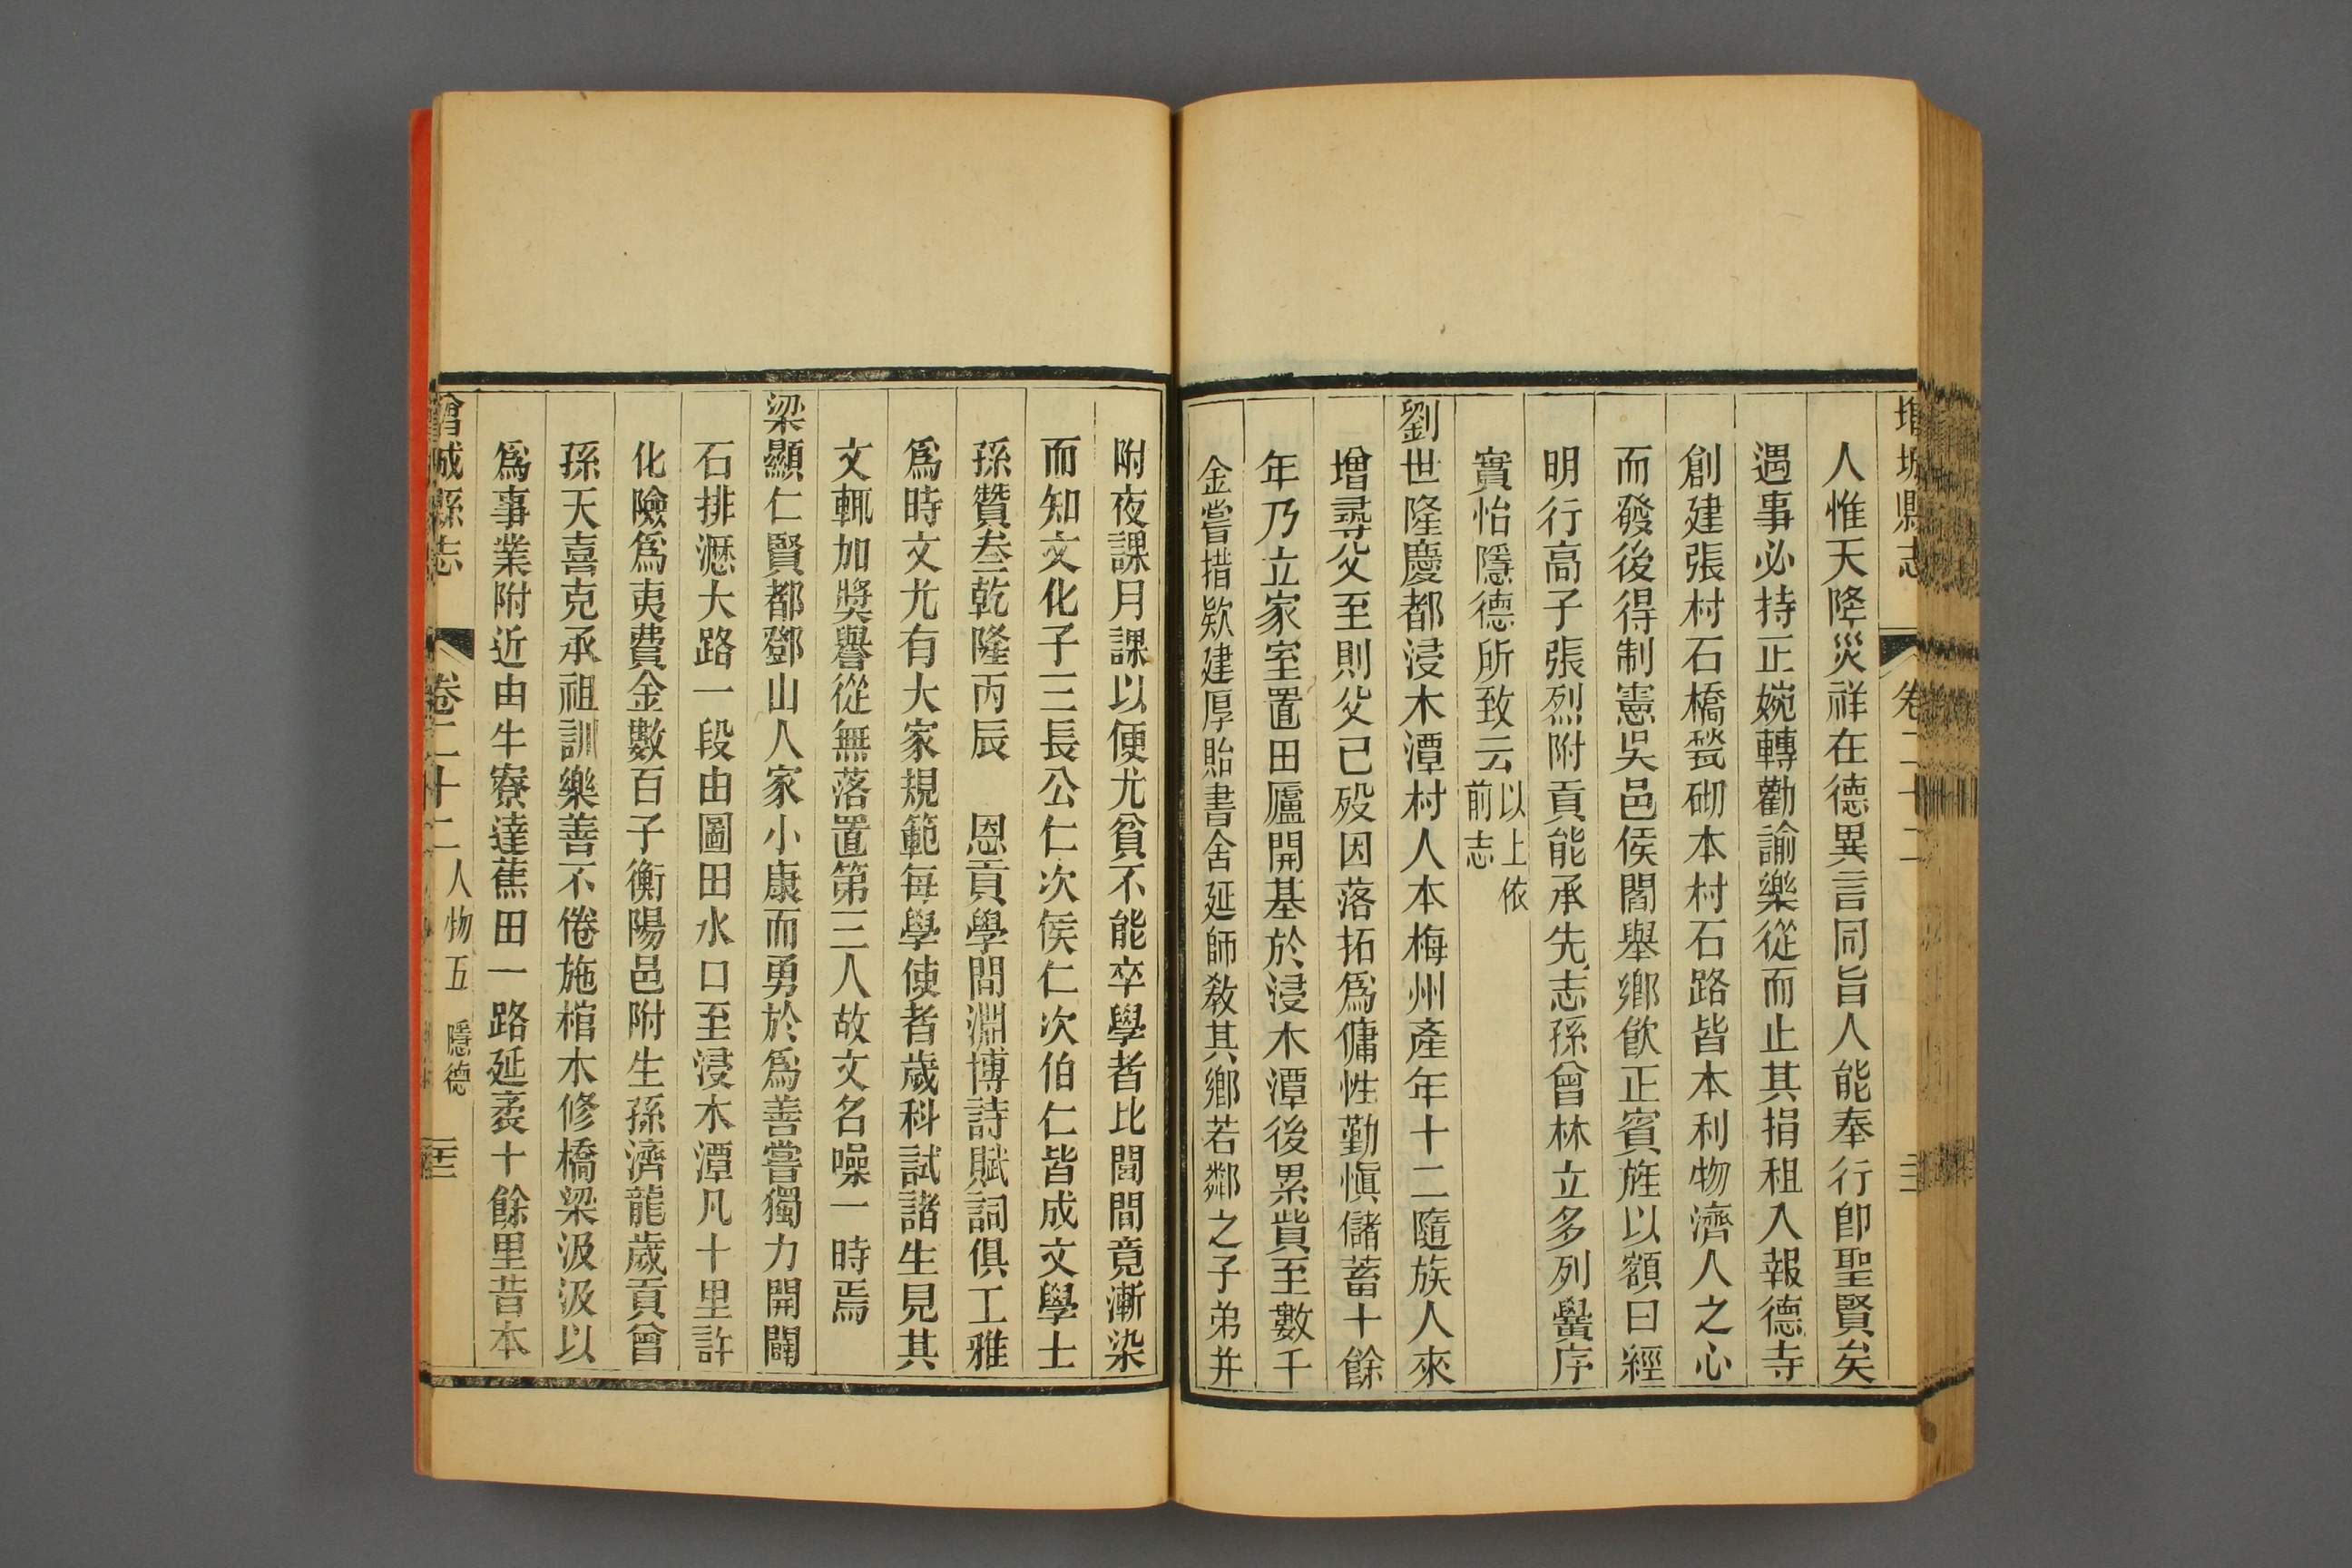 增城縣志
卷二十二
人惟天降災祥在德異言同旨人能奉行卽聖賢矣
遇事必持正婉轉勸諭樂從而止其捐租入報德寺
創建張村石橋甃砌本村石路皆本利物濟人之心
而發後得制憲吳邑侯閻舉鄉飮正賓旌以額曰經
明行高子張烈附貢能承先志孫曾林立多列黌序
實怡隱德所致云以上依
前志
劉世隆慶都浸木潭村人本梅州產年十二隨族人來
增尋父至則父已殁因落拓爲傭性勤愼儲蓄十餘
年乃立家室置田廬開基於浸木潭後累貲至數千
金嘗措欵建厚貽書舍延師敎其鄉若鄰之子弟并
附夜課月課以便尤貧不能卒學者比閭間竟漸染
而知文化子三長公仁次侯仁次伯仁皆成文學士
孫贊叁乾隆丙辰 恩貢學問淵博詩賦詞俱工雅
爲時文尤有大家規範每學使者歲科試諸生見其
文輒加獎譽從無落置第三人故文名噪一時焉
梁顯仁賢都鄧山人家小康而勇於爲善嘗獨力開闢
石排瀝大路一段由圖田水口至浸木潭凡十里許
化險爲夷費金數百子衡陽邑附生孫濟龍歲貢曾
孫天喜克承祖訓樂善不倦施棺木修橋梁汲汲以
爲事業附近由牛寮達蕉田一路延袤十餘里昔本
曾城縣志 卷二十二 人物五 隱德